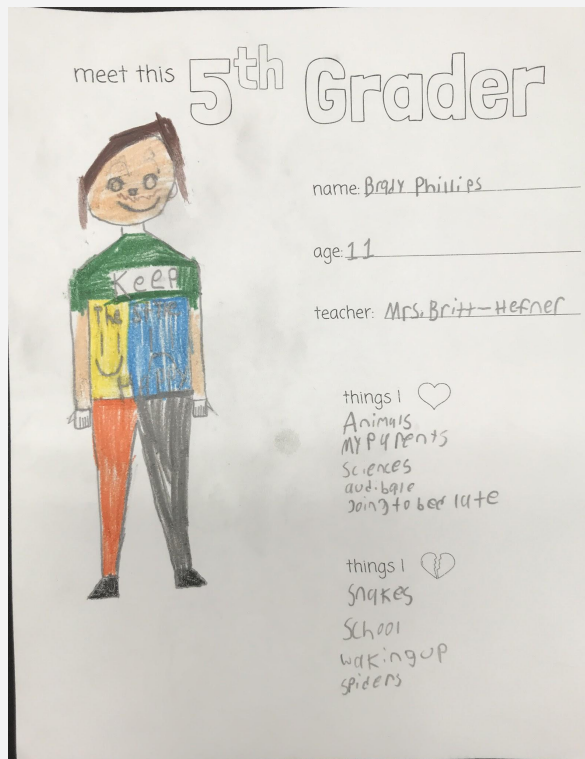 meet this 5th Grader
name: Brady Phillips
age: 11
teacher: Mrs. Britt-Hefner
Keep
The
things I
Animals
My Parents
Sciences
audibale
going to bed late
things I
Snakes
School
waking up
spiders